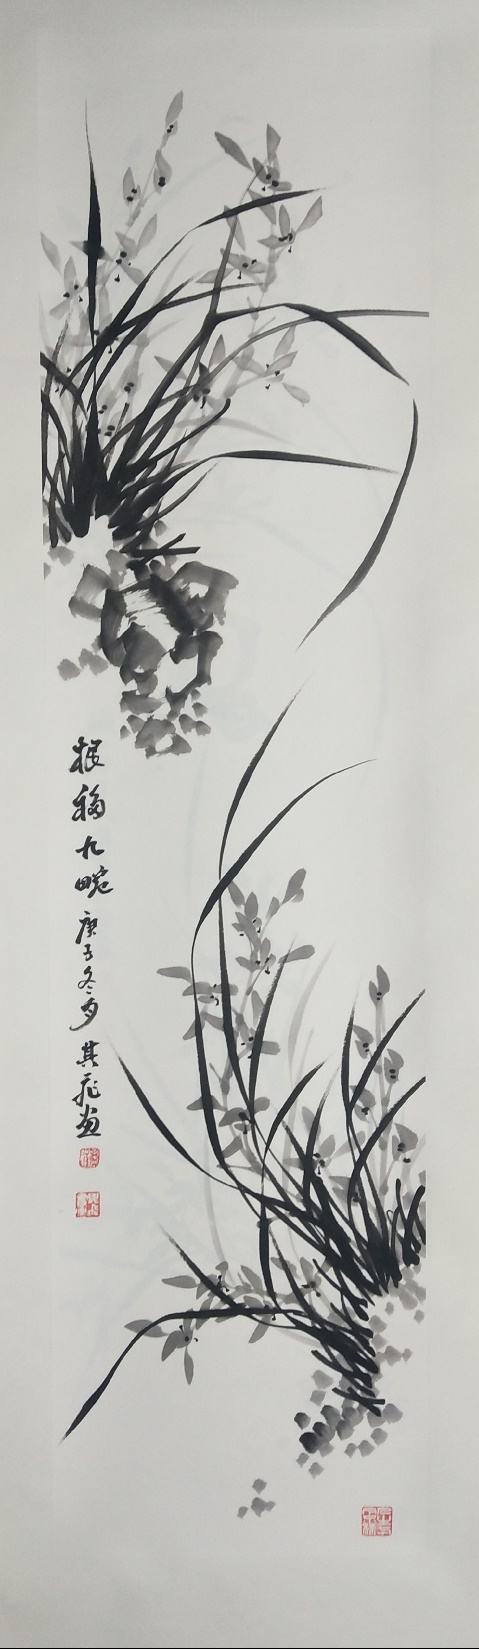 根移九畹庚子冬月其飛畫